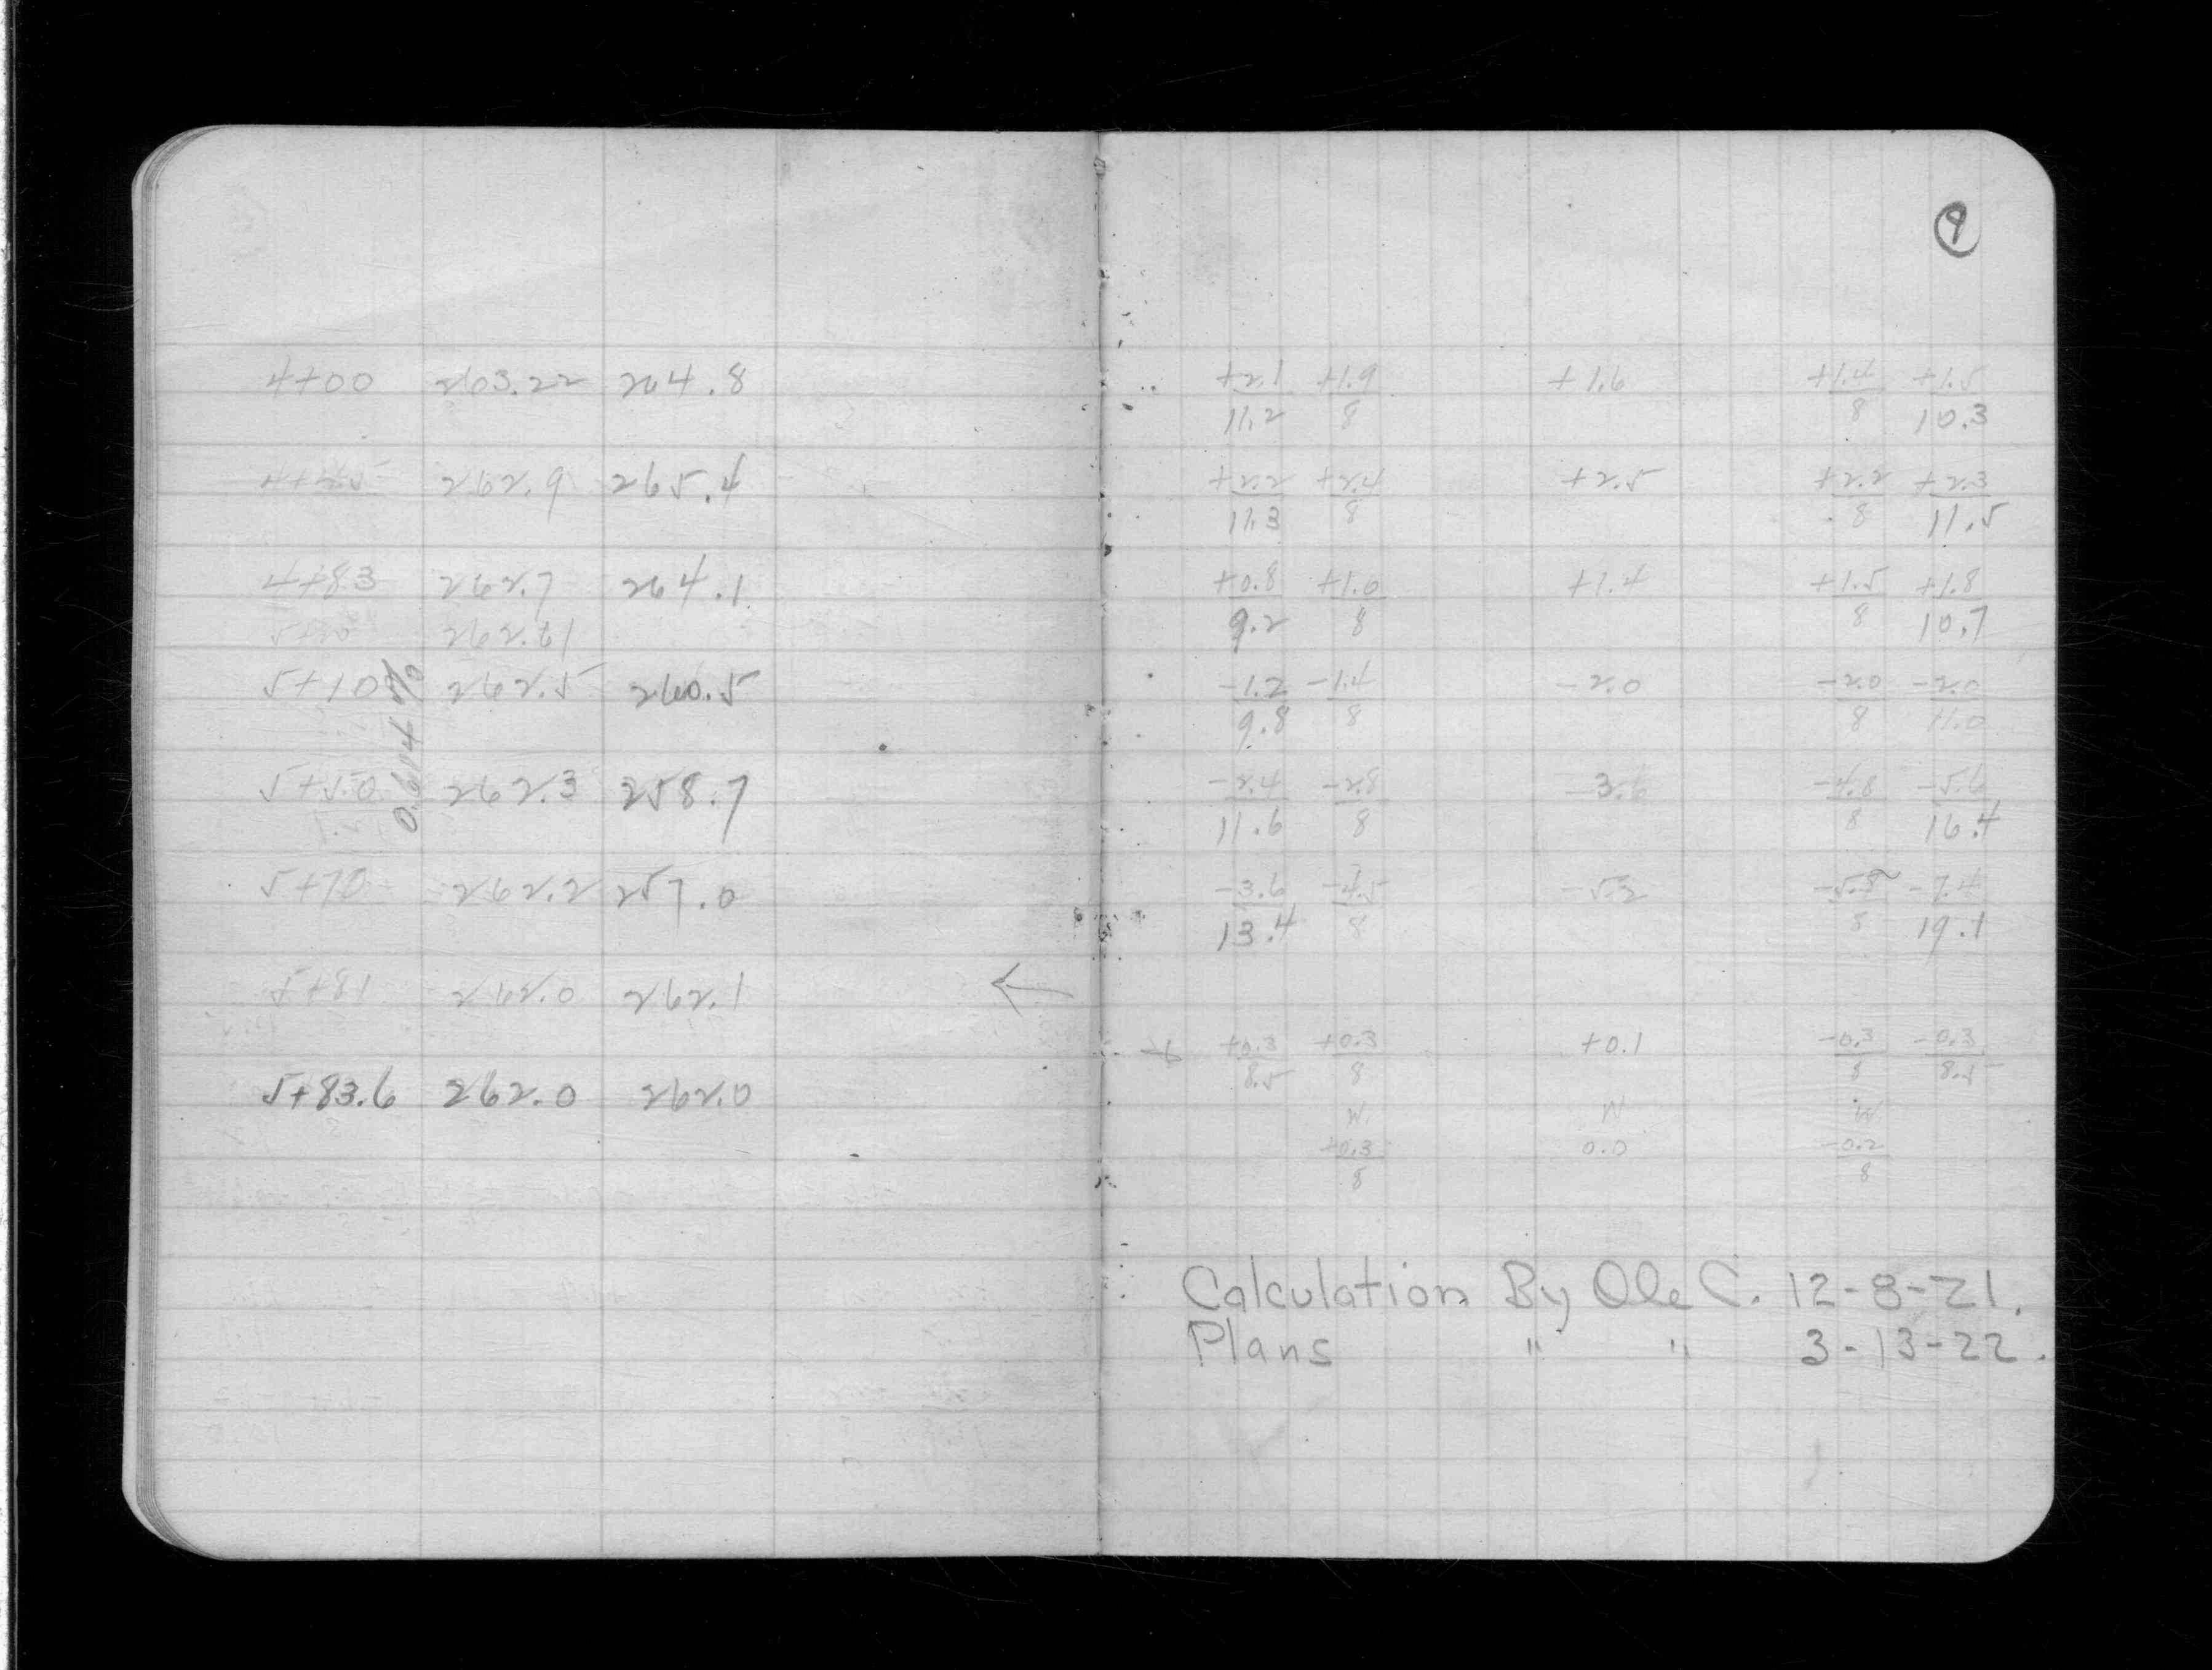 9
4+00 263.22 264.8 +2.1 +1.9 +1.6 +1.4 +1.5
11.2 8 8 10.3
262.9 265.4 +2.2 +2.4 +2.5 +2.2 +2.3
11.3 8 8 11.5
4+83 262.7 264.1 +0.8 +1.0 +1.4 +1.5 +1.8
9.2 8 8 10.7
5+00 262.61
5+10 262.5 260.5 -1.2 -1.4 -2.0 -2.0 -2.0
9.8 8 8 11.0
0.614%
5+50 262.3 258.7 -2.4 -2.8 -3.6 -4.8 -5.6
11.6 8 8 16.4
5+70 262.2 257.0 -3.6 -4.5 -5.2 -7.4
13.4 8 8 19.1
5+81 262.0 262.1 ←
+0.3 +0.3 +0.1 -0.3 -0.3
8.5 8 8 8.5
5+83.6 262.0 262.0
+0.3 0.0 -0.2
8 8
Calculation By Ole C. 12-8-21.
Plans " " 3-13-22.